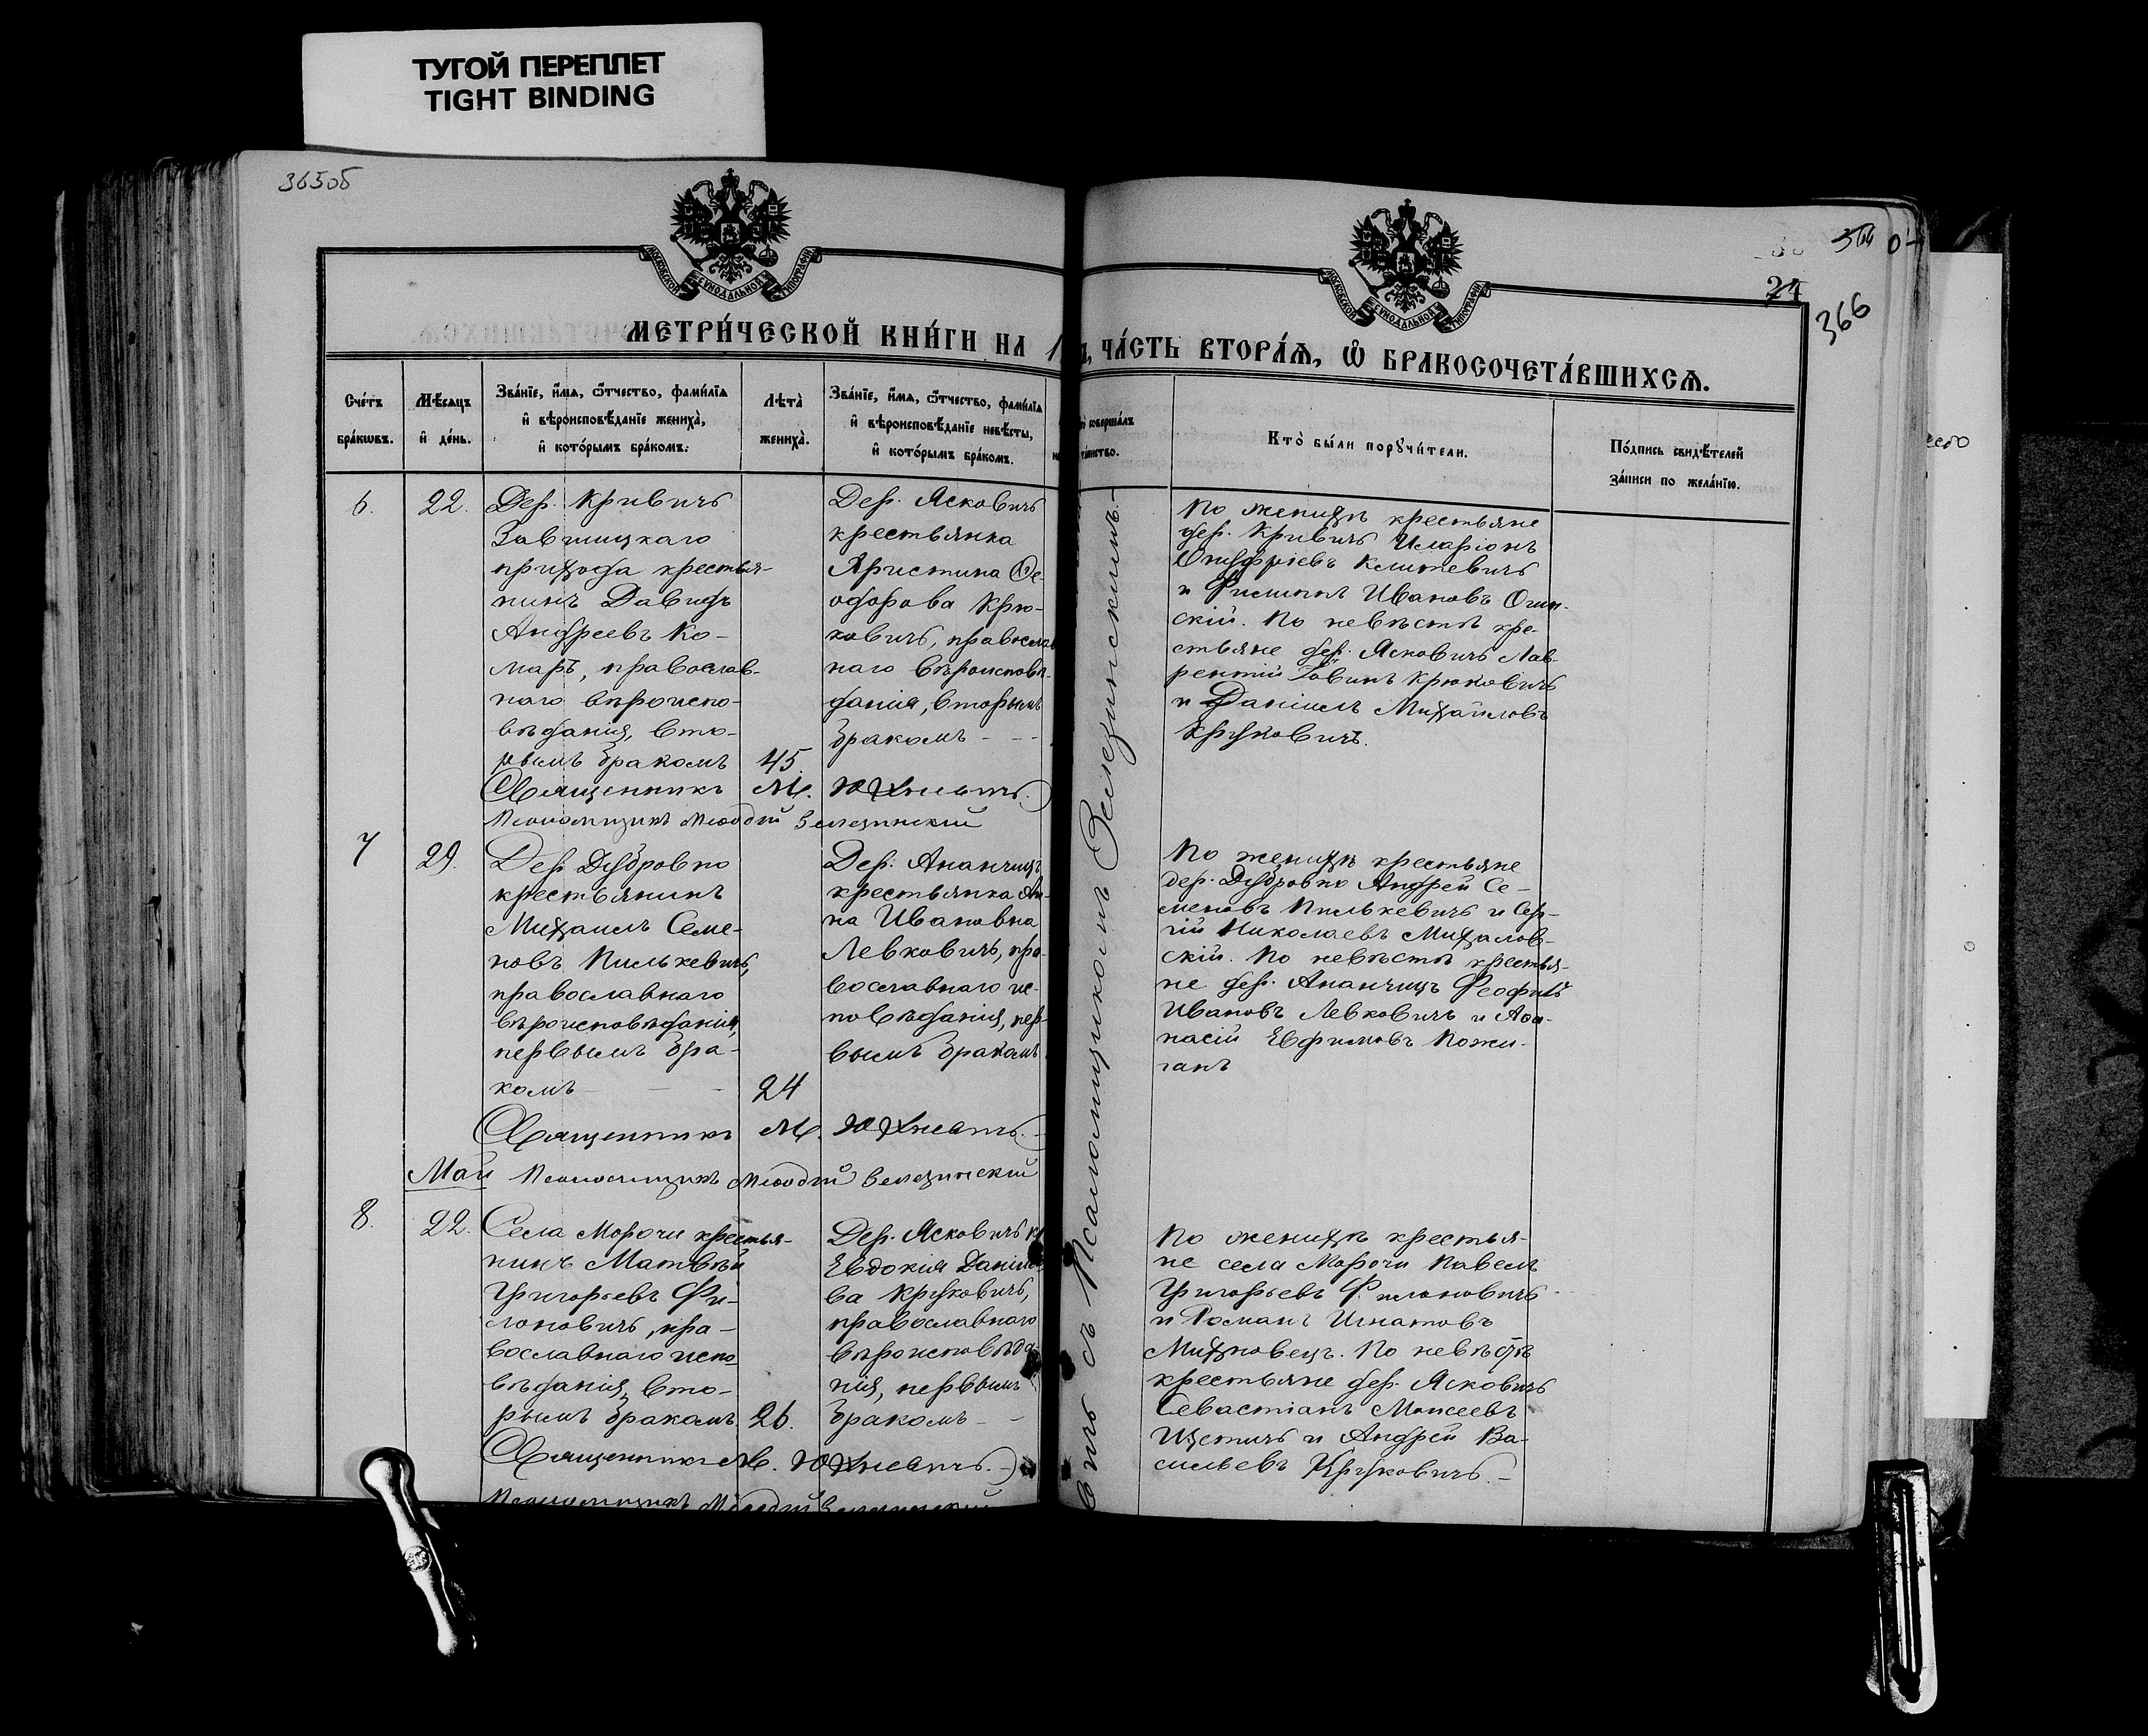 ТУГОЙ ПЕРЕПЛЕТ
TIGHT BINDING
365об
366
24
366
МОСКОВСКОЙ СѴНОДАЛЬНОЙ ТИПОГРАФІИ
МОСКОВСКОЙ СѴНОДАЛЬНОЙ ТИПОГРАФІИ
МЕТРИ́ЧЕСКОЙ КНИ́ГИ НА 1
ЧА́СТЬ ВТОРА́Ѧ, Ѡ҆ БРАКОСОЧЕТА́ВШИХСѦ.
Сче́тъ
бра́кѡвъ.
Мѣ́сяцъ
и҆ де́нь.
Зва́нїе, и҆́мѧ, ѻ҆́тчество, фами́лїа
и҆ вѣроисповѣ́данїе жениха̀,
и҆ кото́рымъ бра́комъ.
Лѣта̀
жениха̀.
Зва́нїе, и҆́мѧ, ѻ҆́тчество, фами́лїа
и҆ вѣроисповѣ́данїе невѣ́сты,
и҆ кото́рымъ бра́комъ.
совершалъ
таинство.
Кто̀ бы́ли порꙋчи́тели.
По́дпись свидѣ́телей
за́писи по жела́нїю.
6.
22.
Дер. Кривичъ
Завшицкаго
прихода крестья-
нинъ Давидъ
Андреевъ Ко-
маръ, православ-
наго вѣроиспо-
вѣданія, вто-
рымъ бракомъ
45.
Дер. Ясковичъ
крестьянка
Христина Ѳе-
одорова Крю-
ковичъ, православ
наго вѣроисповѣ-
данія, вторымъ
бракомъ - - -
По женихѣ крестьяне
дер. Кривичъ Иларіонъ
Онуфріевъ Климкевичъ
и Филиппъ Ивановъ Огин-
скій. По невѣстѣ кре-
стьяне дер. Ясковичъ Лав-
рентій Іовинъ Крюковичъ
и Даніилъ Михайловъ
Круковичъ.
Священникъ М. Юхневичъ.
Псаломщикъ Меѳодій Зелезинскій
7
29.
Дер Дубровно
крестьянинъ
Михаилъ Семе-
новъ Пилькевичъ,
православнаго
вѣроисповѣданія,
первымъ бра-
комъ - - -
24
Дер. Ананчицъ
крестьянка Ан
на Ивановна
Левковичъ, пра-
вославнаго ис-
повѣданія, пер-
вымъ бракомъ
По женихѣ крестьяне
дер. Дубровно Андрей Се-
меновъ Пилькевичъ и Сер-
гій Николаевъ Михалов-
скій. По невѣстѣ крестья-
не дер. Ананчицъ Феофилъ
Ивановъ Левковичъ и Аѳа-
насій Евфимовъ Кожи-
ганъ
Священникъ М. Юхневичъ. -
Май
Псаломщикъ Меѳодій Зелезинскій
8.
22.
Села Морочи крестья-
нинъ Матвѣй
Григорьевъ Фи-
лоновичъ, пра-
вославнаго испо
вѣданія, вто-
рымъ бракомъ
26.
Дер. Ясковичъ к
Евдокія Даніило
ва Круковичъ,
православнаго
вѣроисповѣда
нія, первымъ
бракомъ - -
По женихѣ крестья-
не села Морочи Павелъ
Григорьевъ Филоновичъ
и Романъ Игнатовъ
Михновецъ. По невѣстѣ
крестьяне дер. Ясковичъ
Севастіанъ Моисеевъ
и Андрей Ва-
сильевъ Круковичъ. -
Священникъ М. Юхневичъ. -
Псаломщикъ Меѳодій Зелезинскій
съ Псаломщикомъ Зелезинскимъ. -